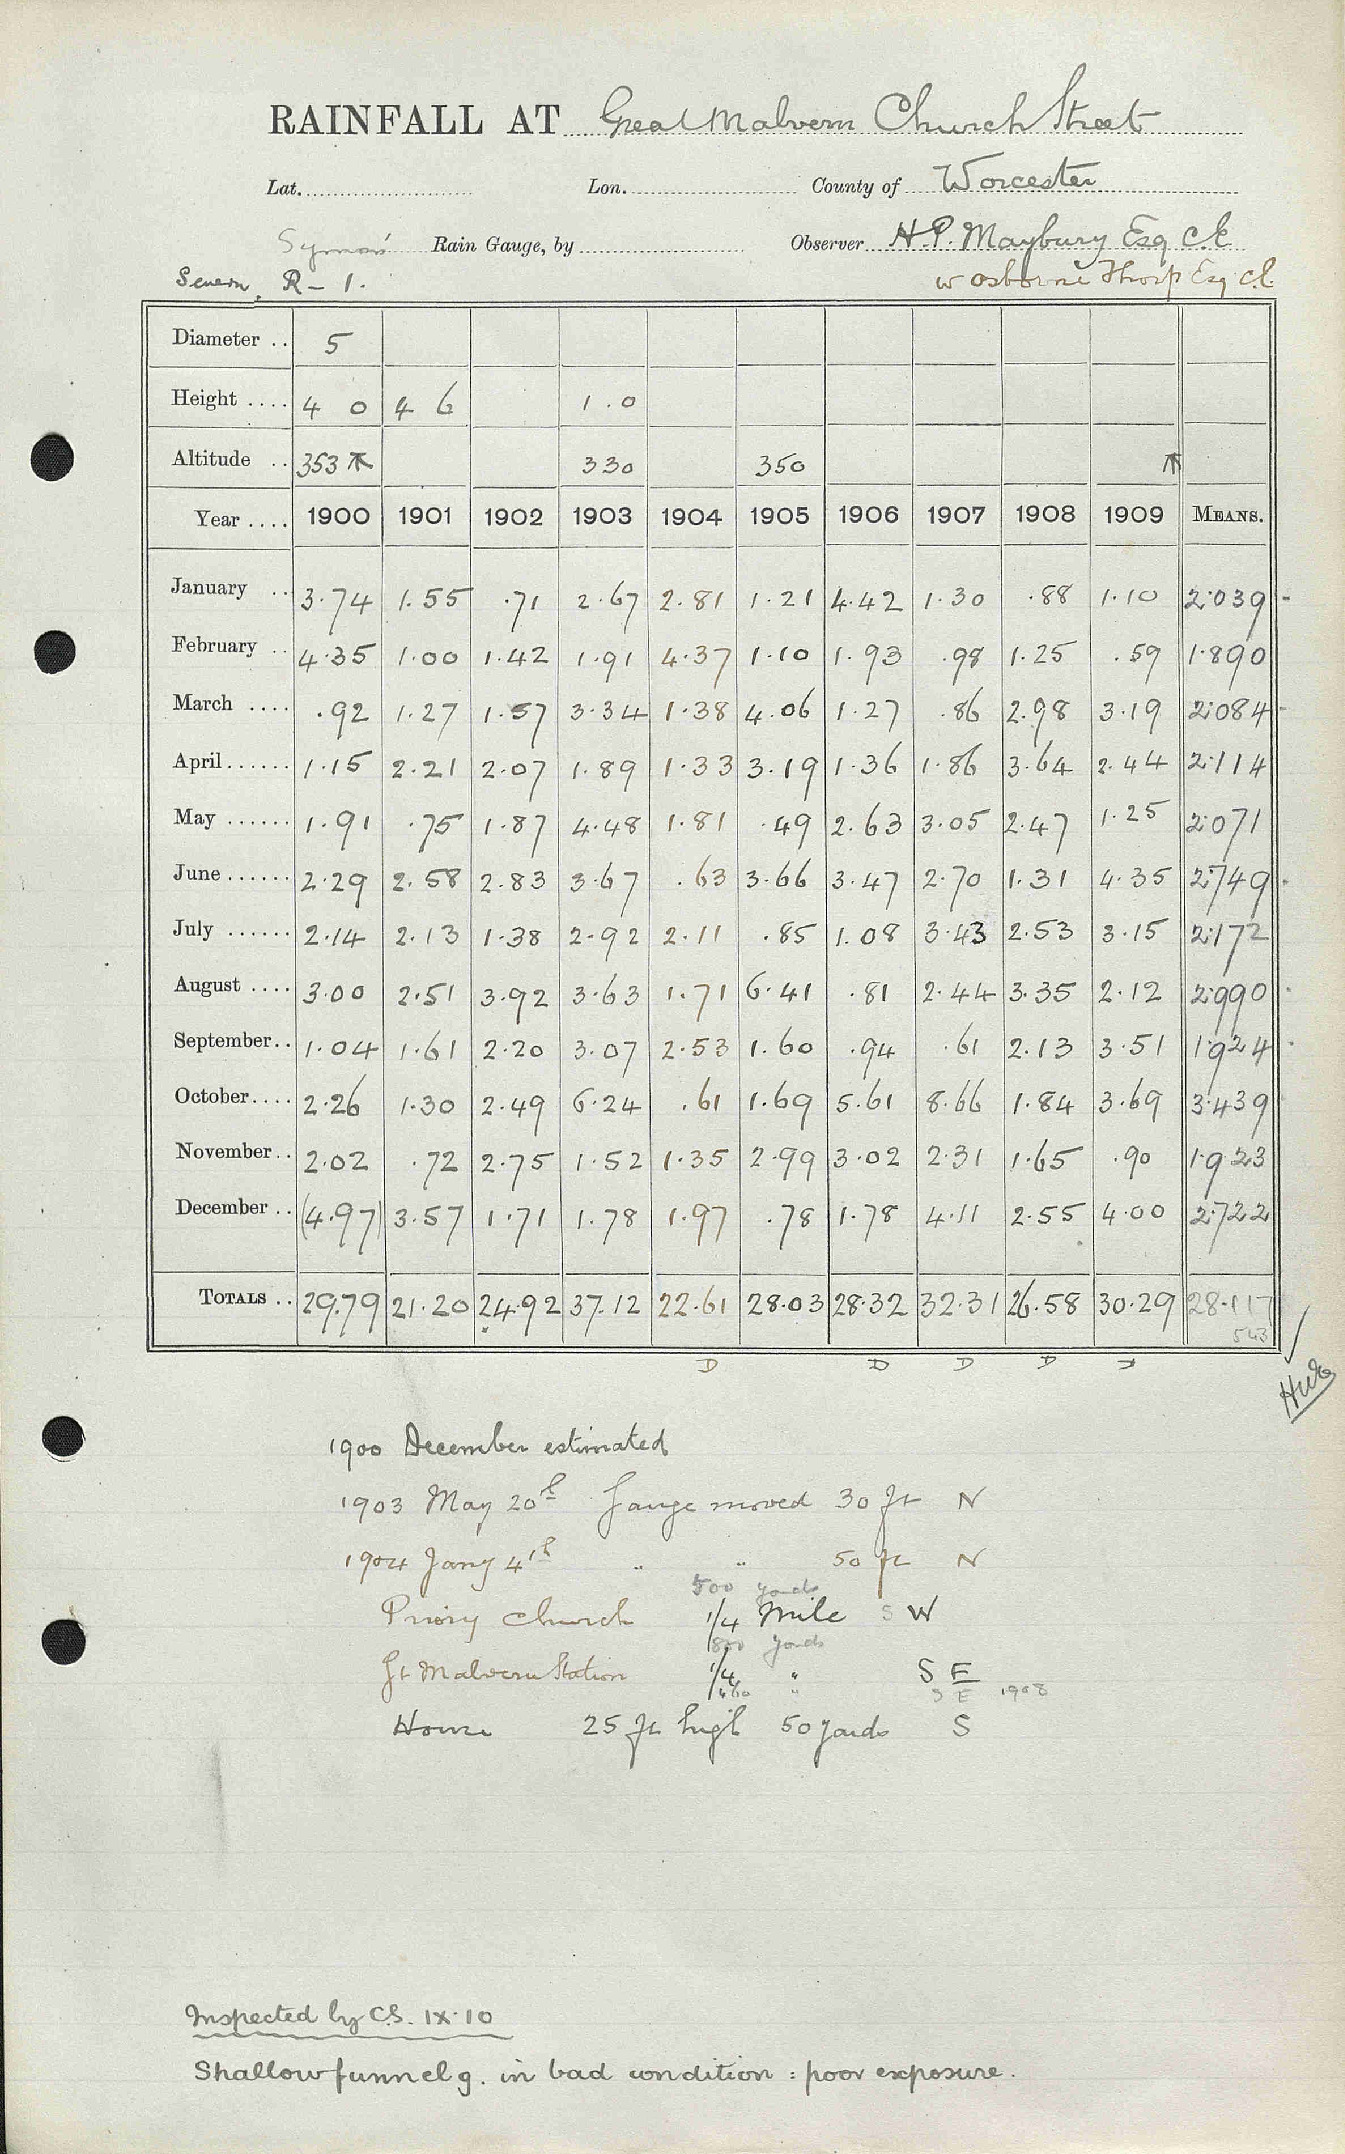 RAINFALL AT Great Malvern Church Street
Lat. Lon. County of Worcester
Symons Rain Gauge, by Observer H.P. Maybury Esq C.E
Severn R - 1. W Osborne Thorp Esq C.E.
Diameter .. 5
Height .... 4 0 4 6 1.0
Altitude .. 353 330 350
Year .... 1900 1901 1902 1903 1904 1905 1906 1907 1908 1909 MEANS.
January .. 3.74 1.55 .71 2.67 2.81 1.21 4.42 1.30 .88 1.10 2.039
February .. 4.35 1.00 1.42 1.91 4.37 1.10 1.93 .98 1.25 .59 1.890
March .... .92 1.27 1.57 3.34 1.38 4.06 1.27 .86 2.98 3.19 2.084
April ...... 1.15 2.21 2.07 1.89 1.33 3.19 1.36 1.86 3.64 2.44 2.114
May ...... 1.91 .75 1.87 4.48 1.81 .49 2.63 3.05 2.47 1.25 2.071
June ...... 2.29 2.58 2.83 3.67 .63 3.66 3.47 2.70 1.31 4.35 2.749
July ...... 2.14 2.13 1.38 2.92 2.11 .85 1.08 3.43 2.53 3.15 2.172
August .... 3.00 2.51 3.92 3.63 1.71 6.41 .81 2.44 3.35 2.12 2.990
September .. 1.04 1.61 2.20 3.07 2.53 1.60 .94 .61 2.13 3.51 1.924
October .... 2.26 1.30 2.49 6.24 .61 1.69 5.61 8.66 1.84 3.69 3.439
November .. 2.02 .72 2.75 1.52 1.35 2.99 3.02 2.31 1.65 .90 1.923
December .. (4.97) 3.57 1.71 1.78 1.97 .78 1.78 4.11 2.55 4.00 2.722
TOTALS .. 29.79 21.20 24.92 37.12 22.61 28.03 28.32 32.31 26.58 30.29 28.117
543
D D D D
1900 December estimated
1903 May 20th Gauge moved 30 ft N
1904 Jany 4th " " 50 ft N
500 yards
Priory Church 1/4 Mile S W
800 yards
Gt Malvern Station 1/4 " S E
" S E 1908
House 25 ft high 50 yards S
Inspected by C.S. IX.10
Shallow funnel g. in bad condition : poor exposure.